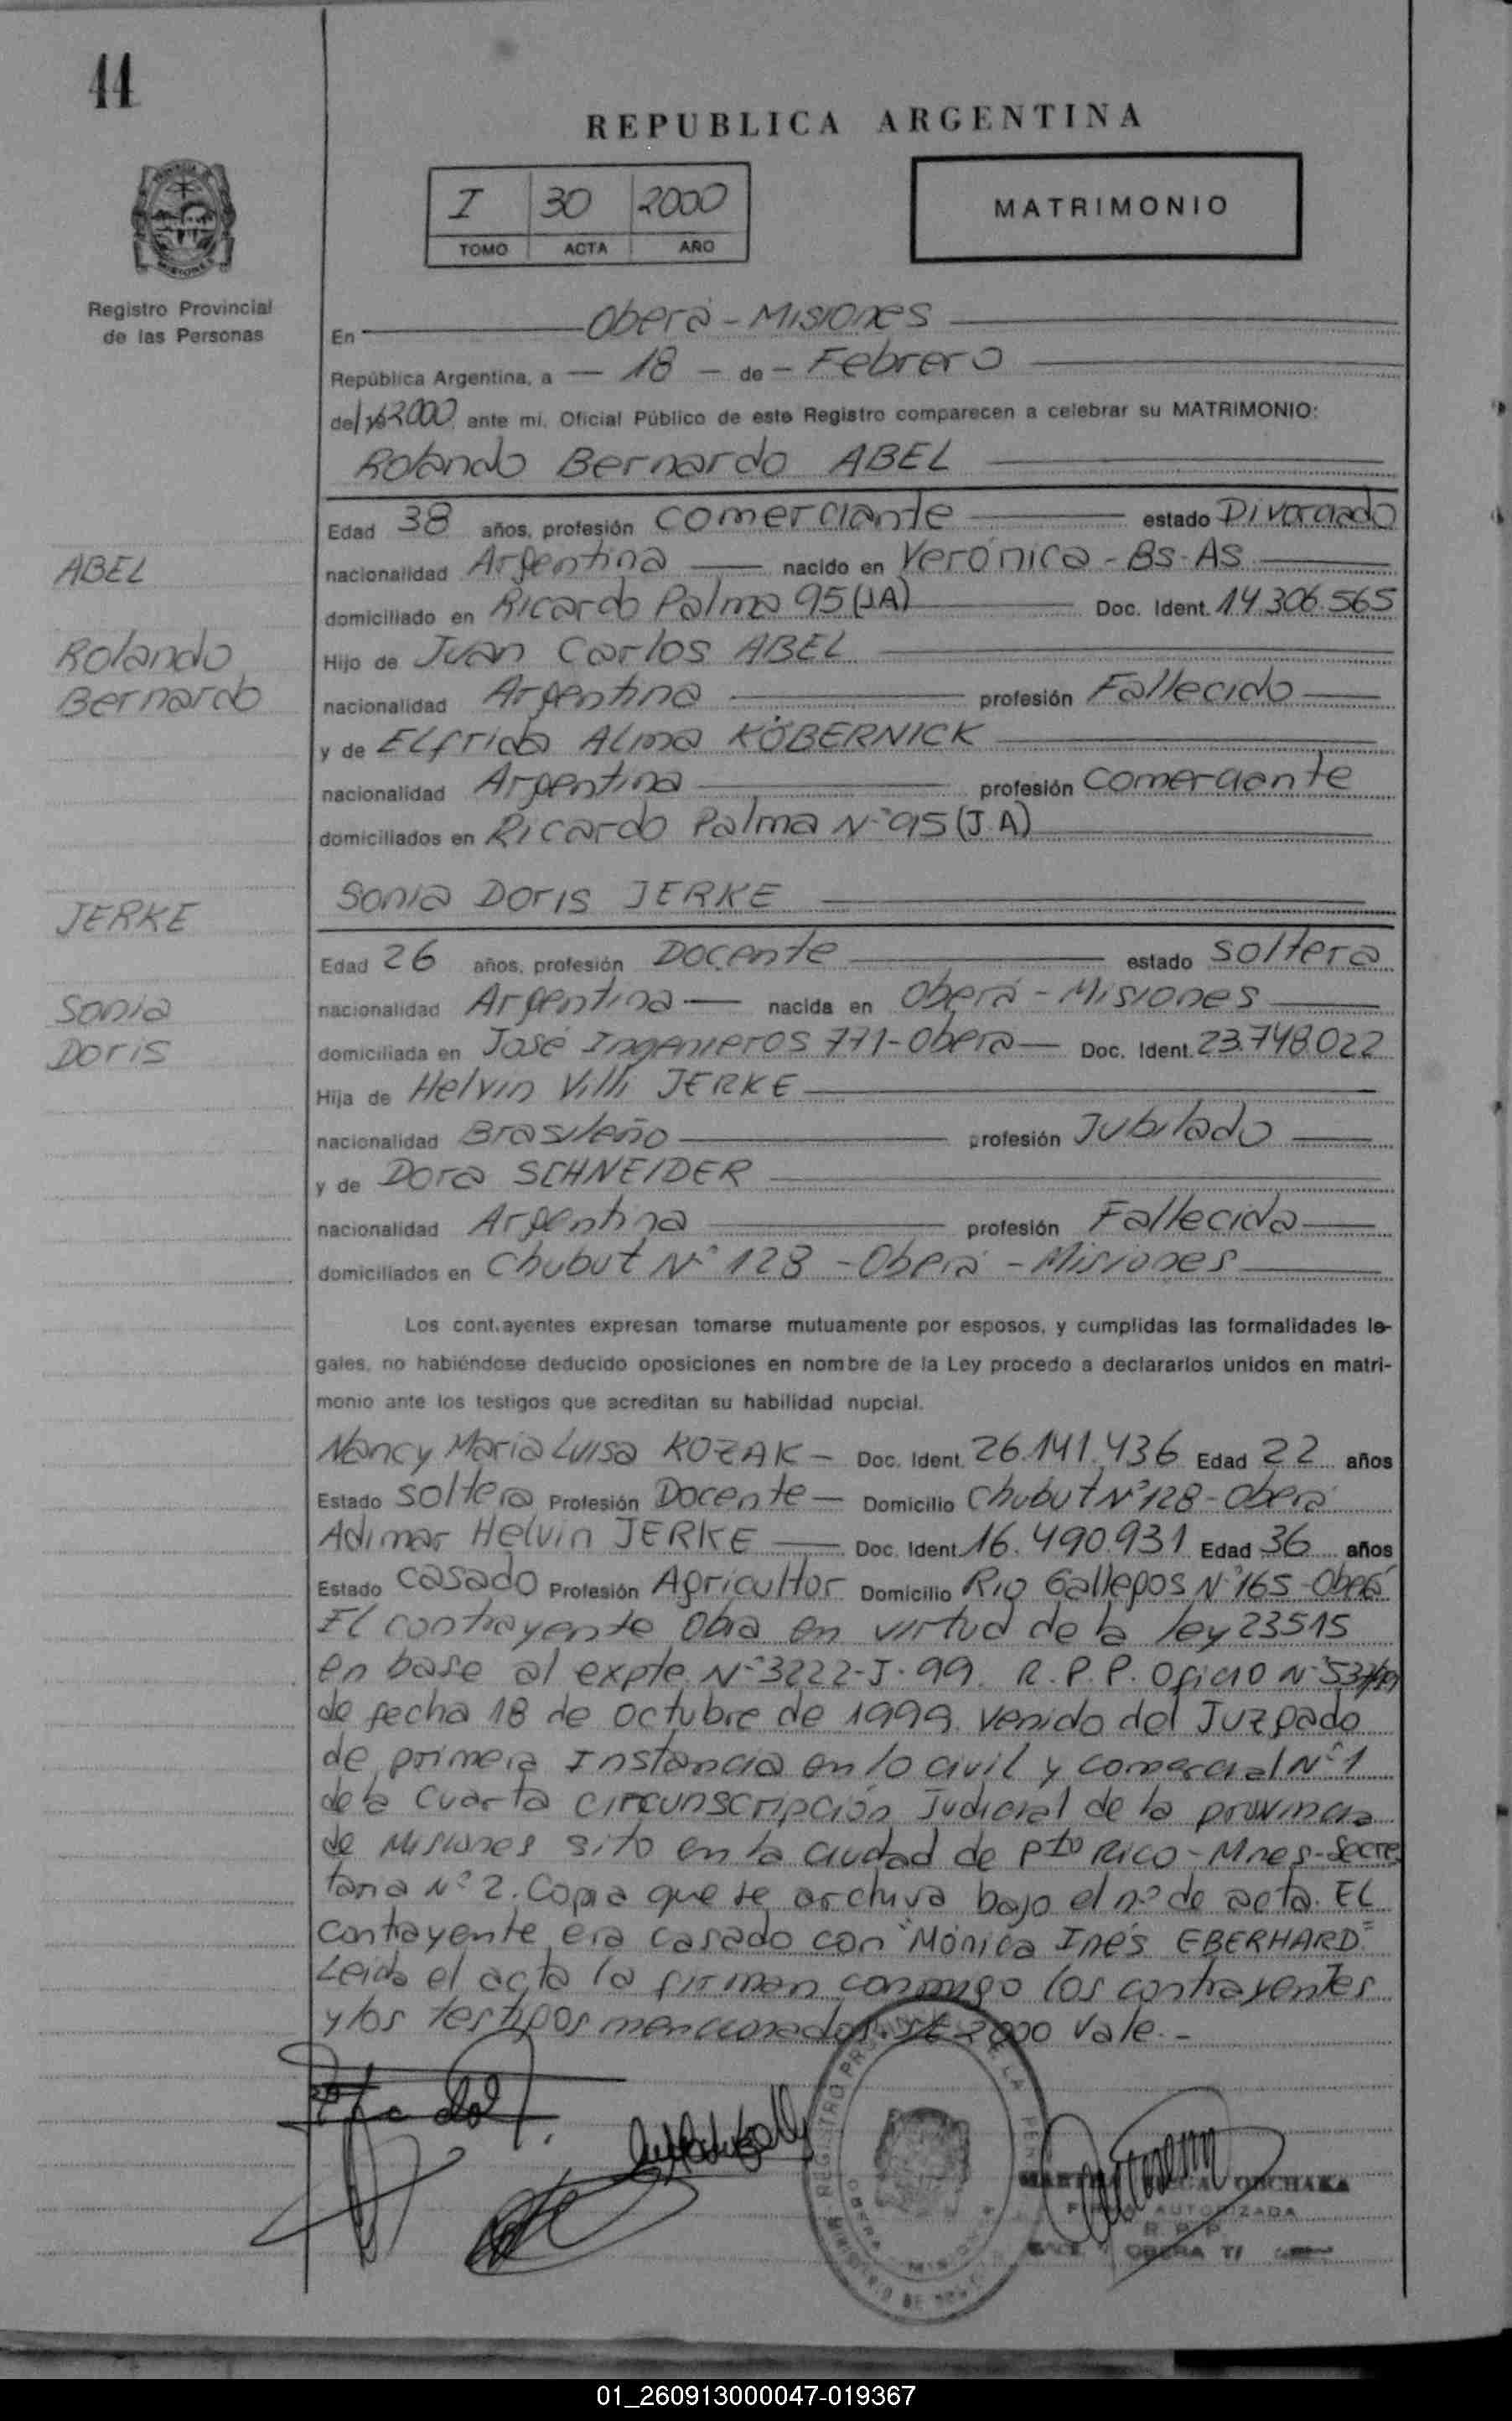 44
REPUBLICA ARGENTINA
I 30 2000
TOMO ACTA AÑO
MATRIMONIO
Registro Provincial
de las Personas
En Oberá - Misiones
República Argentina, a 18 de Febrero
del 2000 ante mi, Oficial Público de este Registro comparecen a celebrar su MATRIMONIO:
Rolando Bernardo ABEL
Edad 38 años, profesión Comerciante estado Divorciado
ABEL
nacionalidad Argentina nacido en Verónica - Bs-As
domiciliado en Ricardo Palma 95 (J.A) Doc. Ident. 14.306.565
Rolando
Hijo de Juan Carlos ABEL
Bernardo
nacionalidad Argentina profesión Fallecido
y de Elfrida Alma KÖBERNICK
nacionalidad Argentina profesión Comerciante
domiciliados en Ricardo Palma Nº 95 (J.A)
Sonia Doris JERKE
JERKE
Edad 26 años, profesión Docente estado Soltera
Sonia
nacionalidad Argentina nacida en Oberá - Misiones
Doris
domiciliada en José Ingenieros 771 - Oberá Doc. Ident. 23.748.022
Hija de Helvin Villi JERKE
nacionalidad Brasileño profesión Jubilado
y de Dora SCHNEIDER
nacionalidad Argentina profesión Fallecida
domiciliados en Chubut Nº 128 - Oberá - Misiones
Los contrayentes expresan tomarse mutuamente por esposos, y cumplidas las formalidades le-
gales, no habiéndose deducido oposiciones en nombre de la Ley procedo a declararlos unidos en matri-
monio ante los testigos que acreditan su habilidad nupcial.
Nancy Maria Luisa KOZAK - Doc. Ident. 26.141.436 Edad 22 años
Estado Soltera Profesión Docente - Domicilio Chubut Nº 128 - Oberá
Adimar Helvin JERKE Doc. Ident. 16.490.931 Edad 36 años
Estado Casado Profesión Agricultor Domicilio Rio Gallegos Nº 165 - Oberá
El contrayente Obra en virtud de la ley 23515
en base al expte. Nº 3222-J-99. R.P.P. Oficio Nº 537/99
de fecha 18 de octubre de 1999. Venido del Juzgado
de primera Instancia en lo civil y comercial Nº 1
de la Cuarta circunscripción Judicial de la provincia
de Misiones sito en la ciudad de Pto Rico - Mnes - Secre
taria Nº 2. Copia que se archiva bajo el nº de acta. El
contrayente era casado con "Mónica Inés EBERHARD"
Leida el acta la firman conmigo los contrayentes
y los testigos mencionados. 2000 Vale.-
OBCHAKA
FIRMA AUTORIZADA
R. P. P.
OBERA
01_260913000047-019367